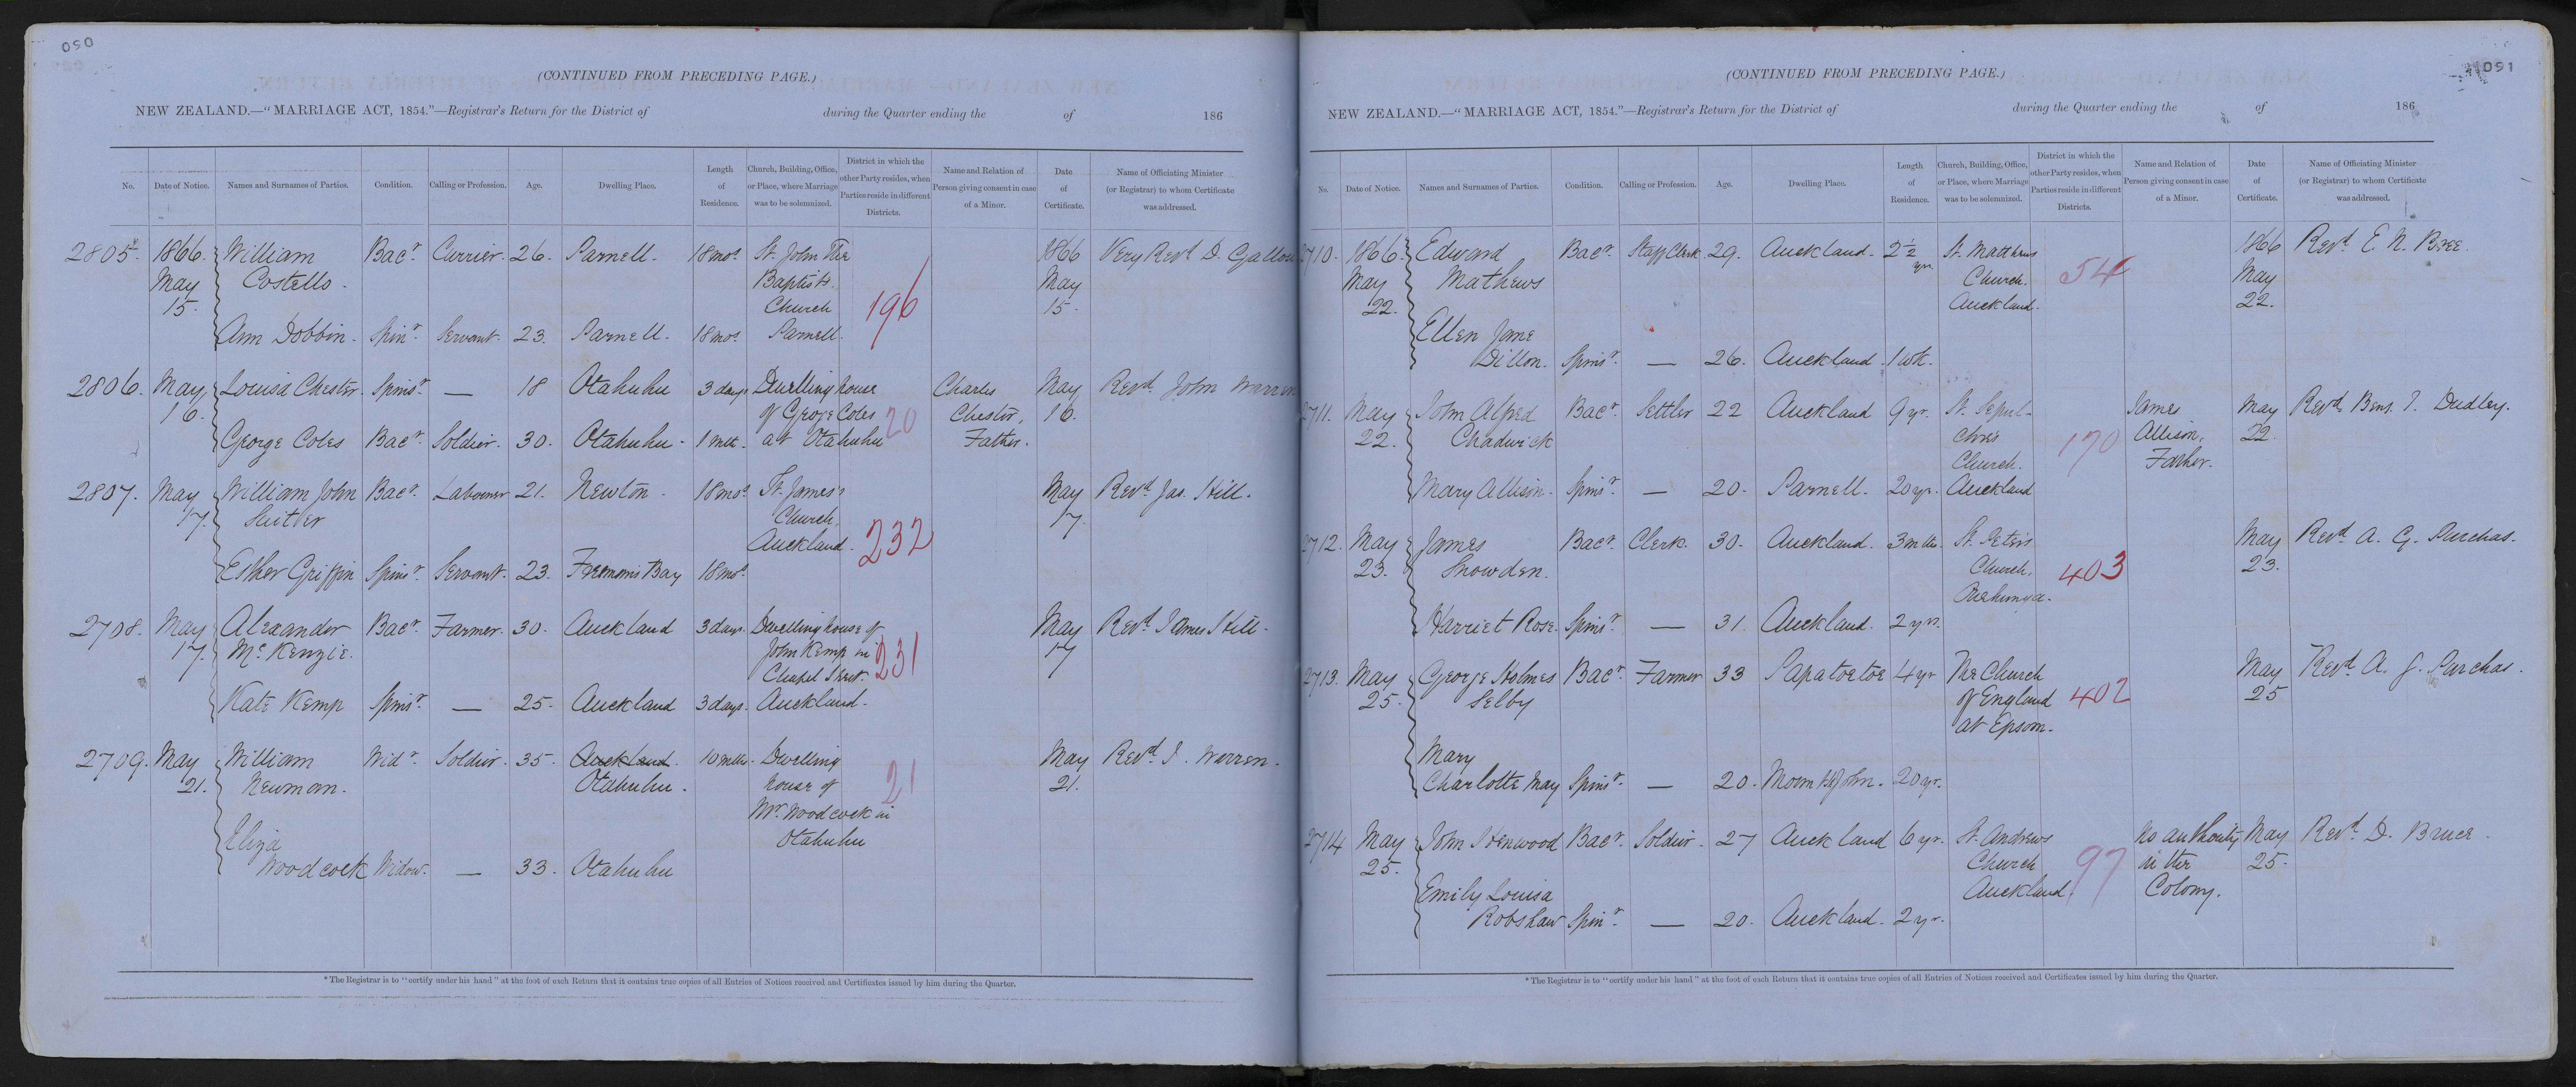 050
(CONTINUED FROM PRECEDING PAGE.)
NEW ZEALAND.—"MARRIAGE ACT, 1854."—Registrar's Return for the District of during the Quarter ending the of 186
No. Date of Notice. Names and Surnames of Parties. Condition. Calling or Profession. Age. Dwelling Place. Length of Residence. Church, Building, Office, or Place, where Marriage was to be solemnized. District in which the other Party resides, when Parties reside in different Districts. Name and Relation of Person giving consent in case of a Minor. Date of Certificate. Name of Officiating Minister (or Registrar) to whom Certificate was addressed.
2805. 1866. William Bacr. Currier. 26. Parnell. 18 mos. St. John The 1866 Very Revd. D.
May Costello. Baptist May
15. Church 196 15.
Ann Dobbin. Spinr. Servant. 23. Parnell. 18 mos. Parnell.
2806. May Louisa Chester. Spinsr. — 18 Otahuhu 3 days Dwelling house Charles May Revd. John Warren
16. of George Coles 20 Chester, 16.
George Coles Bacr. Soldier. 30. Otahuhu. 1 mth. at Otahuhu Father.
2807. May William John Bacr. Labourer 21. Newton. 18 mos. St. James's May Revd. Jas. Hill.
17. Church 17.
Auckland. 232
Esther Griffin Spinsr. Servant. 23. Freemans Bay 18 mos.
2708. May Alexander Bacr. Farmer. 30. Auckland 3 days. Dwelling house of May Revd. James Hill.
17. McKenzie. John Kemp in 231 17
Chapel Street.
Kate Kemp Spinsr. — 25. Auckland 3 days. Auckland.
2709. May William Widr. Soldier. 35. Auckland. 10 mths. Dwelling May Revd. J. Warren.
21. Newman. Otahuhu. house of 21 21.
Mr. Woodcock in
Eliza Otahuhu
Woodcock Widow. — 33. Otahuhu
* The Registrar is to "certify under his hand" at the foot of each Return that it contains true copies of all Entries of Notices received and Certificates issued by him during the Quarter.
091
(CONTINUED FROM PRECEDING PAGE.)
NEW ZEALAND.—"MARRIAGE ACT, 1854."—Registrar's Return for the District of during the Quarter ending the of 186
No. Date of Notice. Names and Surnames of Parties. Condition. Calling or Profession. Age. Dwelling Place. Length of Residence. Church, Building, Office, or Place, where Marriage was to be solemnized. District in which the other Party resides, when Parties reside in different Districts. Name and Relation of Person giving consent in case of a Minor. Date of Certificate. Name of Officiating Minister (or Registrar) to whom Certificate was addressed.
2710. 1866. Edward Bacr. Staff Clerk 29. Auckland. 2 1/2 yrs. St. Matthews 1866 Revd. E. N. Bree.
May Mathews Church. 54 May
22. Auckland. 22.
Ellen Jane
Dillon. Spinsr. — 26. Auckland. 1 wk.
2711. May John Alfred Bacr. Settler 22 Auckland 9 yr. St. Sepul- James May Revd. Benj. T. Dudley.
22. Chadwick chres 170 Allison, 22.
Church. Father.
Mary Allison. Spinsr. — 20. Parnell. 20 yr. Auckland
2712. May James Bacr. Clerk. 30. Auckland. 3 mths. St. Peter's May Revd. A. G. Purchas.
23. Snowden. Church. 403 23.
Onehunga.
Harriet Rose. Spinsr. — 31. Auckland. 2 yrs.
2713. May George Holmes Bacr. Farmer 33 Papatoetoe 4 yr The Church May Revd. A. G. Purchas.
25. Selby of England 402 25
at Epsom.
Mary
Charlotte May Spinsr. — 20. Mount St. John. 20 yr.
2714 May John Henwood Bacr. Soldier. 27 Auckland 6 yr. St. Andrews No authority May Revd. D. Bruce.
25. Church 97 in the 25.
Emily Louisa Auckland. Colony.
Robshaw Spinr. — 20. Auckland. 2 yr.
* The Registrar is to "certify under his hand" at the foot of each Return that it contains true copies of all Entries of Notices received and Certificates issued by him during the Quarter.